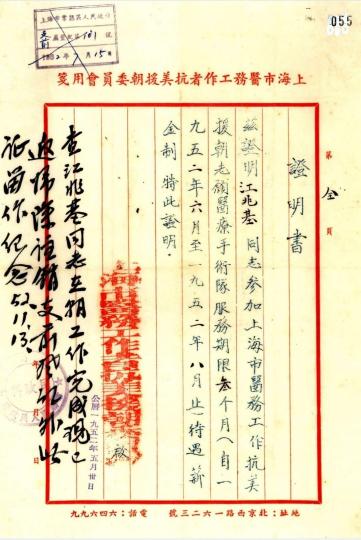 055
上海市常熟區人民政府
101 號
1952年7月15日
上海市醫務工作者抗美援朝委員會用箋
第 全 頁
證明書
茲證明江兆基同志參加上海市醫務工作抗美
援朝志願醫療手術隊服務期限叁个月(自一
九五二年六月至一九五二年八月止)待遇薪
金制 特此證明。
上海市醫務工作者抗美援朝委員會 啟
公曆一九五二年五月卅日
查江兆基同志在朝工作完成現已
返歸除註銷支前戳記外此
証留作紀念 52.11.13.
地址:北京西路一六二三號 電話:六四六九九